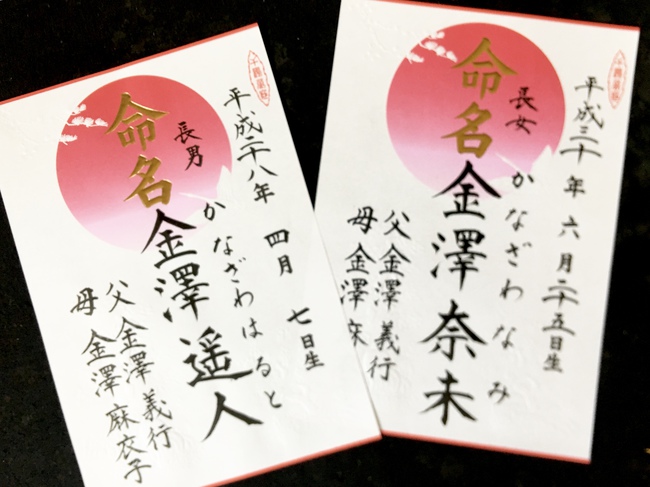 平成二十八年 四月 七日生
長男
かなざわはると
命名 金澤遥人
父 金澤義行
母 金澤麻衣子
平成三十年 六月二十五日生
長女
かなざわなみ
命名 金澤奈未
父 金澤義行
母 金澤麻